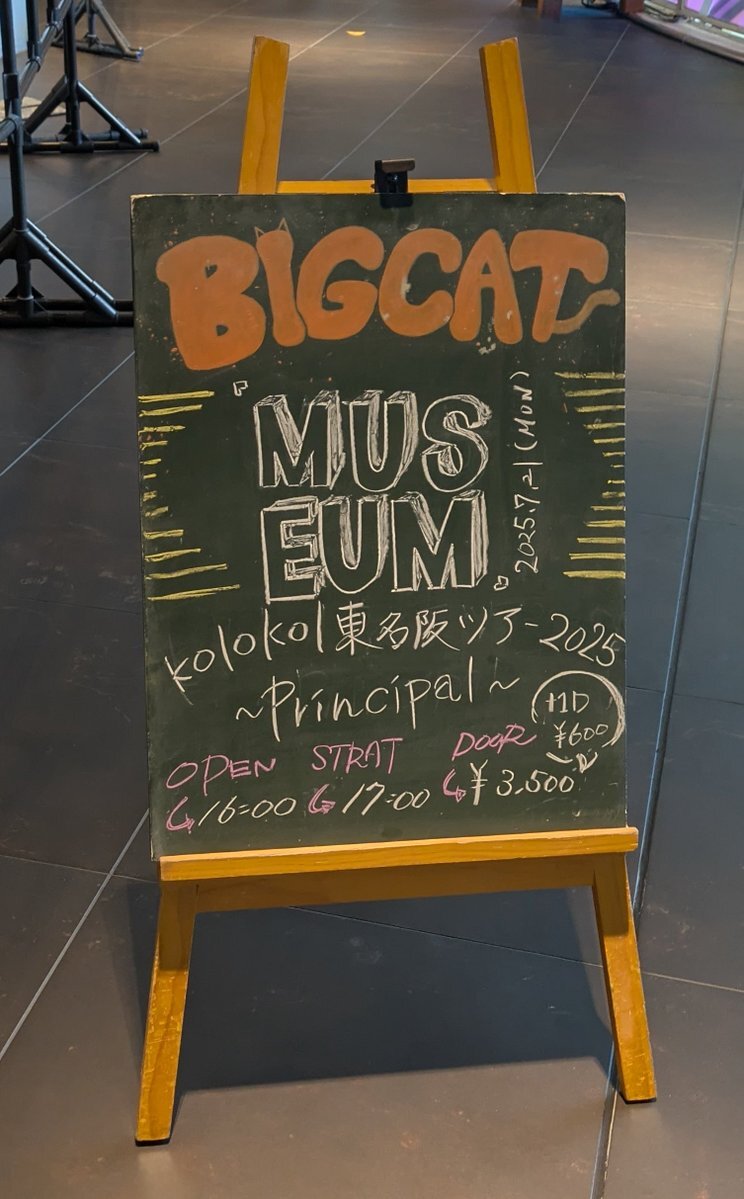 BIGCAT
『MUS
EUM』
2025.7.21(MON)
kolokol東名阪ツアー2025
~Principal~
OPEN STRAT DOOR
16:00 17:00 ¥3,500
+1D
¥600